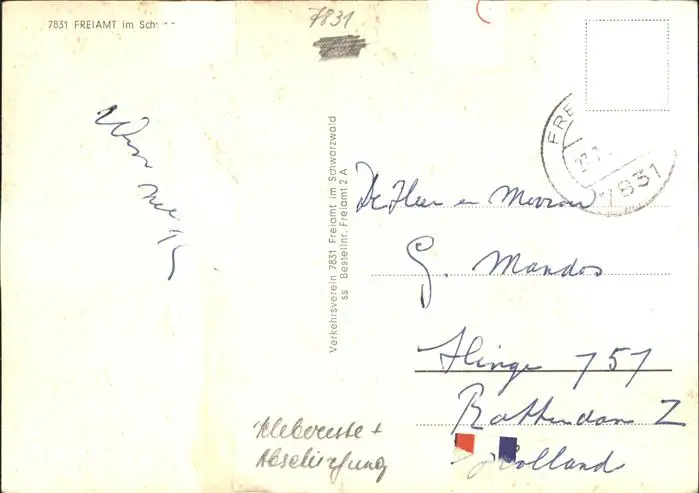 7831 FREIAMT im Schw
7831
Verkehrsverein 7831 Freiamt im Schwarzwald
ss Bestellnr. Freiamt 2 A
FRE
7831
De Heer en Mevrouw
G. Mandos
Slinge 757
Rotterdam Z
Holland
Klebereste +
Abschürfung